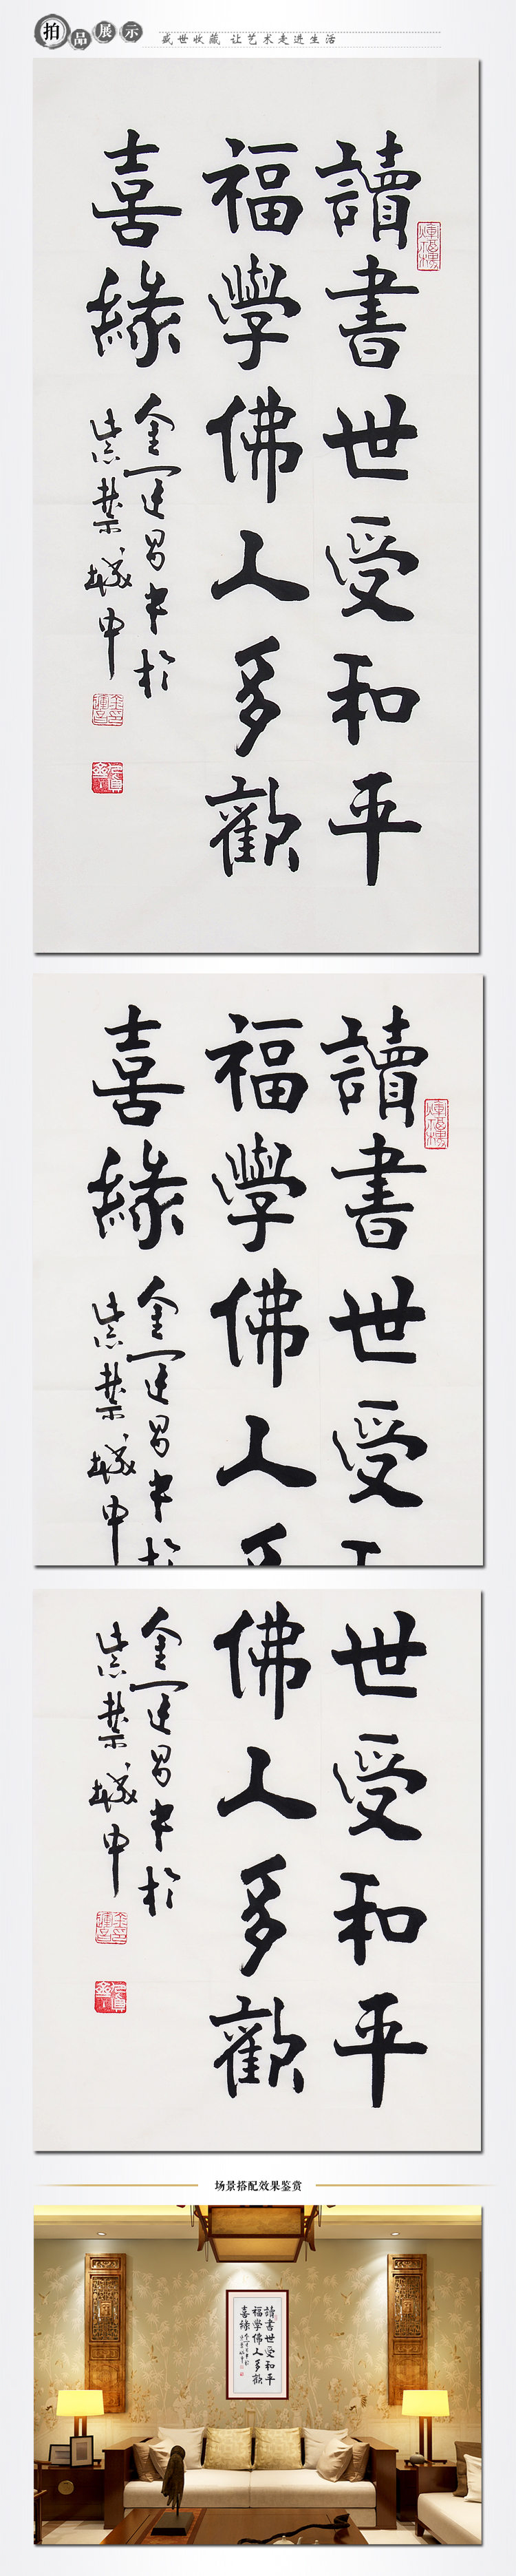 拍品展示
盛世收藏 让艺术走进生活
讀書世受和平
福學佛人多歡
喜緣
金運昌书於
紫禁城中
讀書世受
福學佛人
喜緣
金運昌书
紫禁城中
世受和平
佛人多歡
金運昌书於
紫禁城中
场景搭配效果鉴赏
讀書世受和平
福學佛人多歡
喜緣